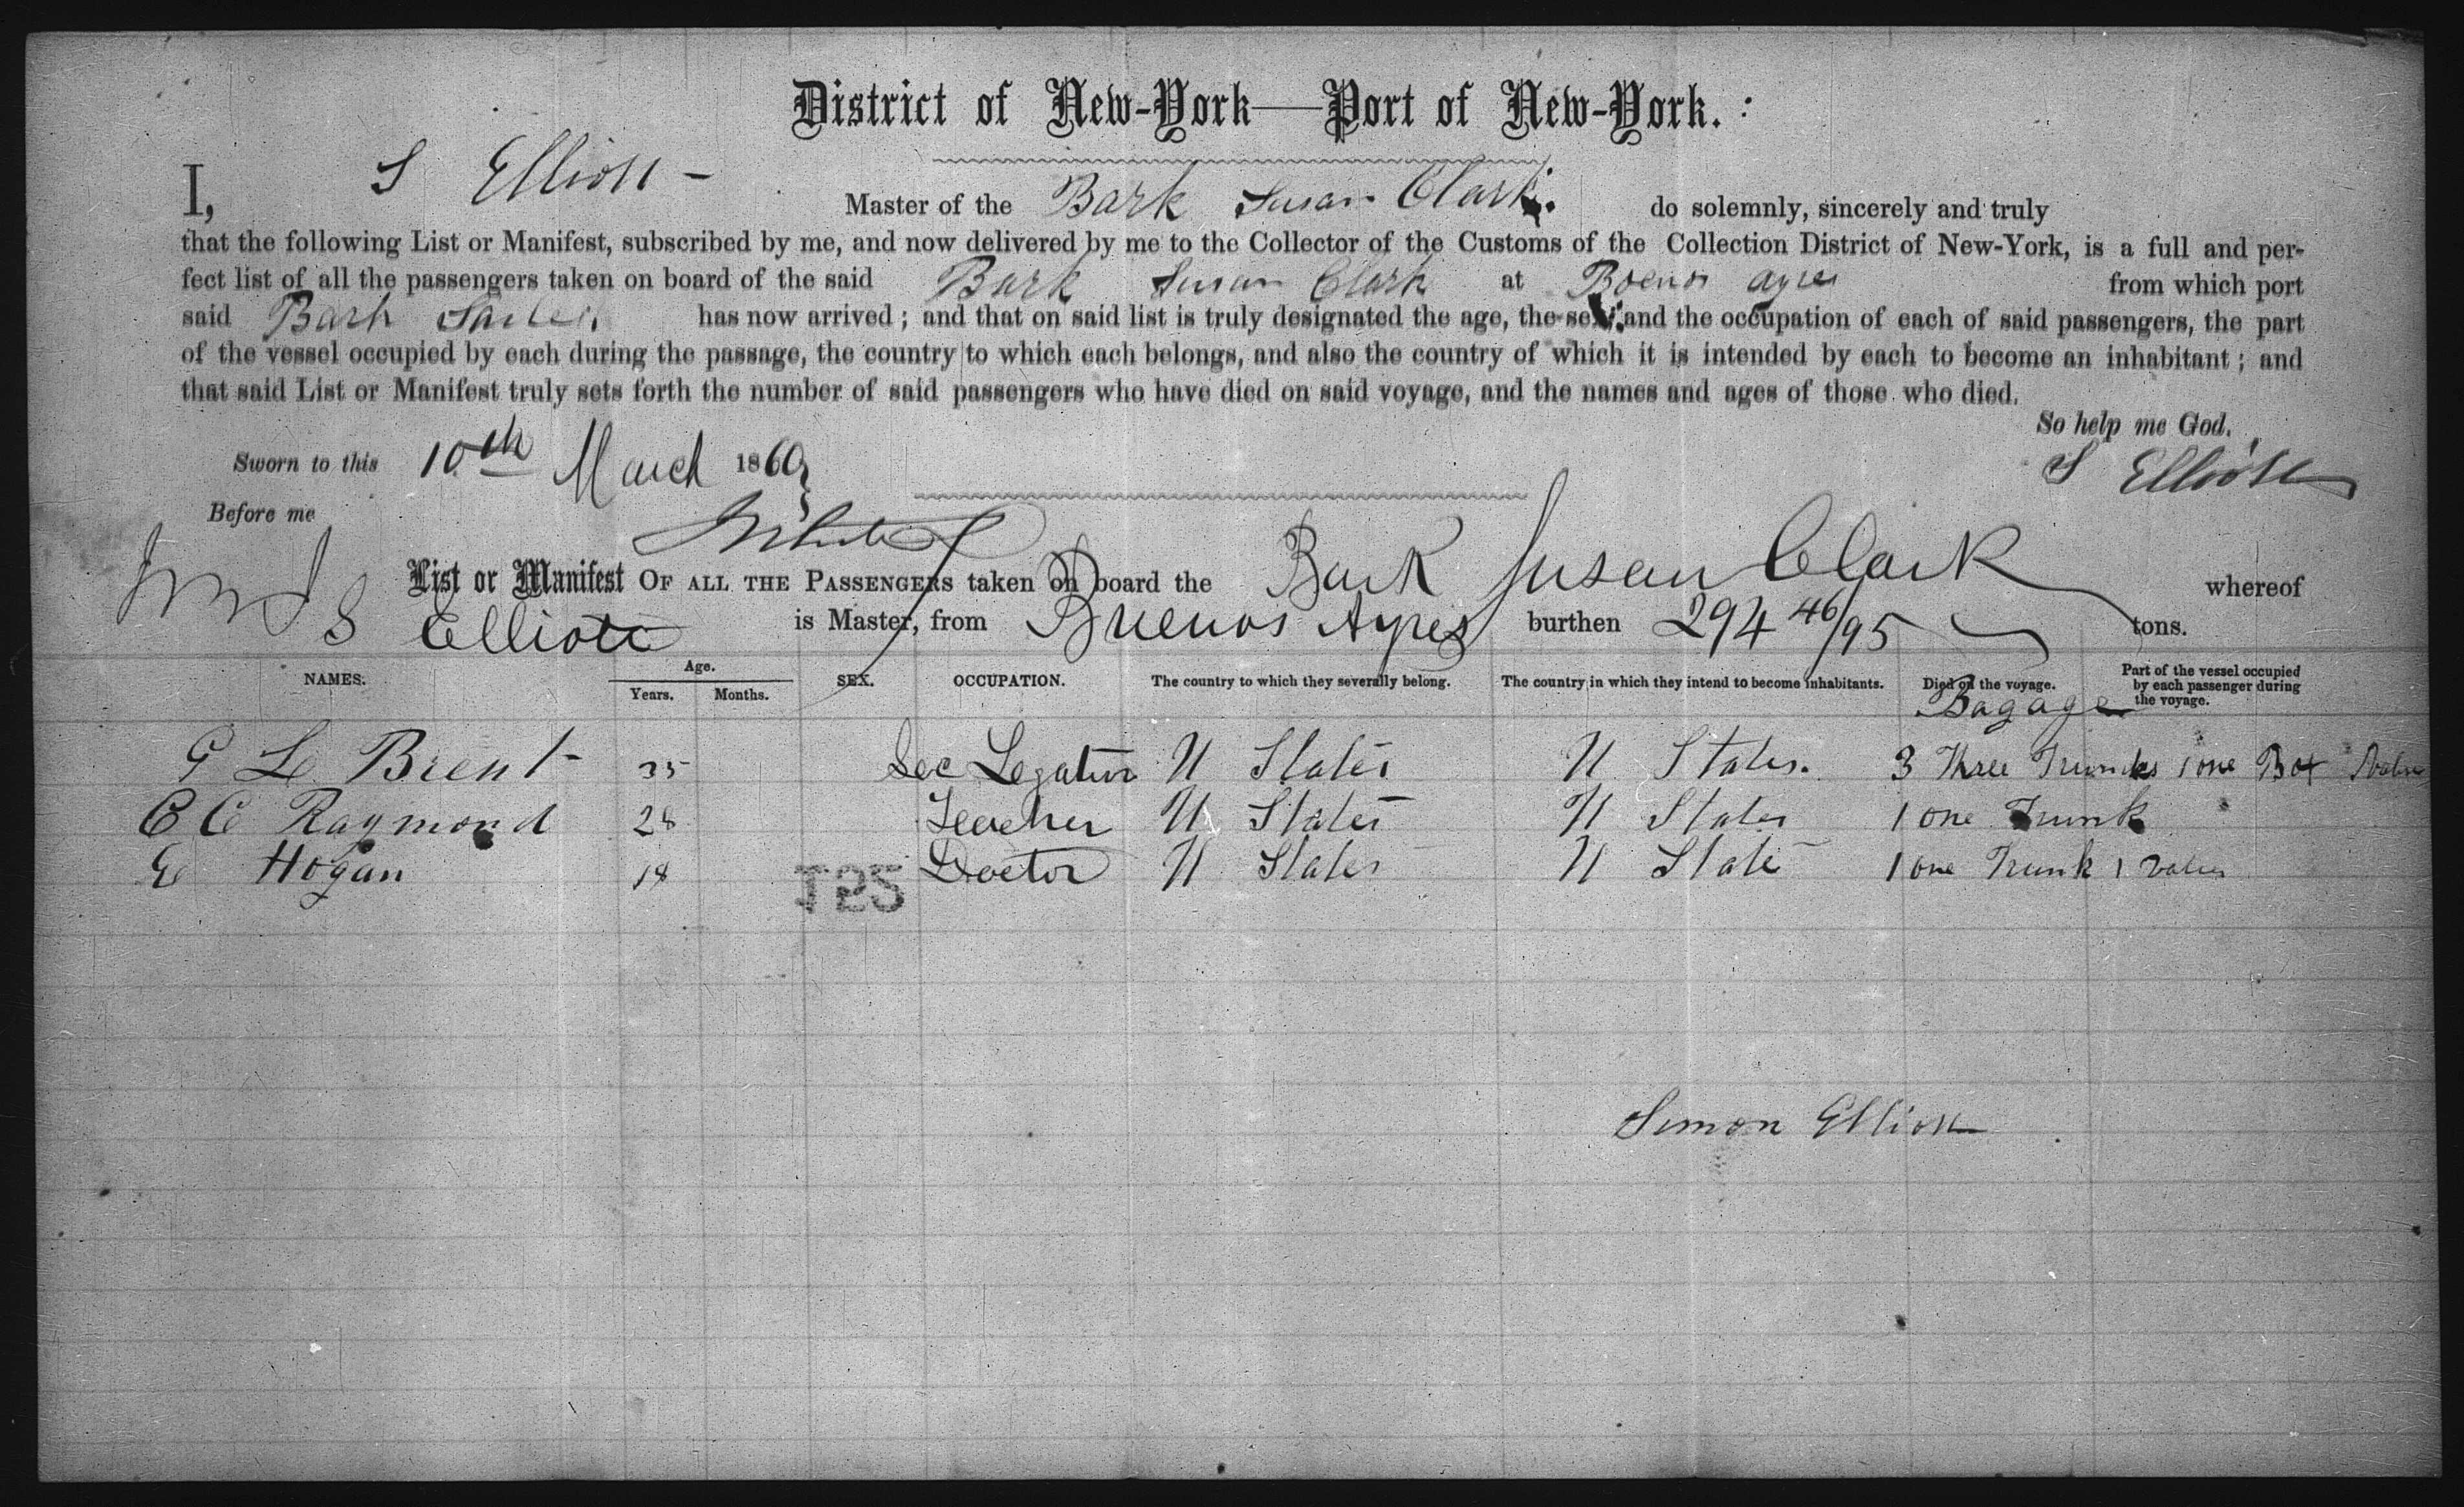 District of New-York—Port of New-York.
I, S Elliott - Master of the Bark Susan Clark. do solemnly, sincerely and truly
that the following List or Manifest, subscribed by me, and now delivered by me to the Collector of the Customs of the Collection District of New-York, is a full and per-
fect list of all the passengers taken on board of the said Bark Susan Clark at Boenos Ayres from which port
said Bark has now arrived; and that on said list is truly designated the age, the sex, and the occupation of each of said passengers, the part
of the vessel occupied by each during the passage, the country to which each belongs, and also the country of which it is intended by each to become an inhabitant; and
that said List or Manifest truly sets forth the number of said passengers who have died on said voyage, and the names and ages of those who died.
So help me God.
Sworn to this 10th March 1860 S Elliott
Before me
List or Manifest OF ALL THE PASSENGERS taken on board the Bark Susan Clark whereof
S Elliott is Master, from Buenos Ayres burthen 294 46/95 tons.
NAMES. Age. Years. Months. SEX. OCCUPATION. The country to which they severally belong. The country in which they intend to become inhabitants. Died on the voyage. Part of the vessel occupied by each passenger during the voyage.
Bagage
G L Brent 35 Sec Legation U States U States. 3 Three Trunks 1 one Box
C C Raymond 28 Teacher U States U States 1 one Trunk
E Hogan 18 Doctor U States U State 1 one Trunk 1
T25
Simon Elliott